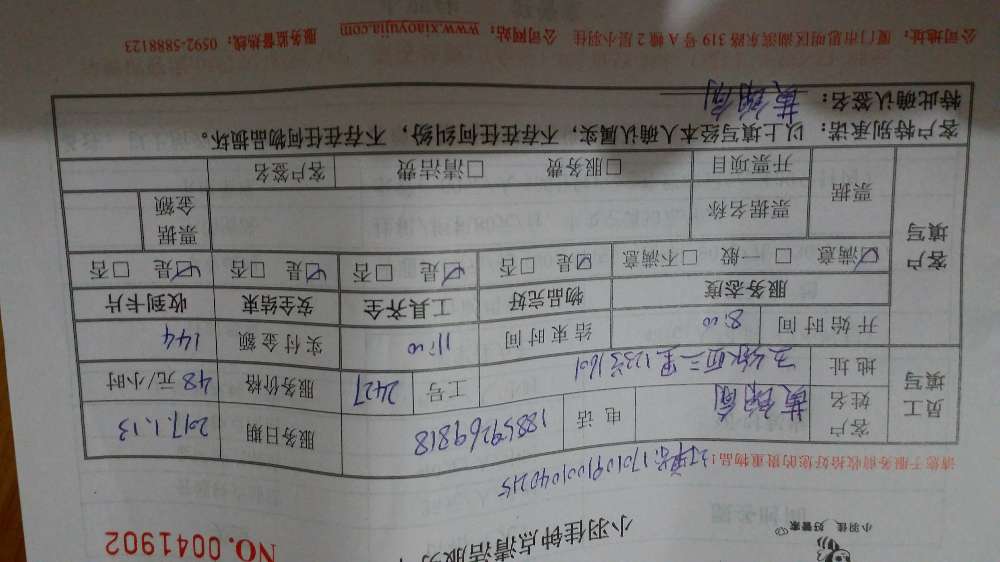 小羽佳 好管家
小羽佳钟点清洁服务
NO.0041902
订单号:1701091001040245
请您于服务前收拾好您的贵重物品!
员工填写
客户姓名
电话 18859269818
服务日期 2017.1.13
地址
工号 2427
服务价格 48元/小时
开始时间 8:00
结束时间 11:00
实付金额 144
客户填写
服务态度 物品完好 工具齐全 安全结束 收到卡片
☑满意 □一般 □不满意 ☑是 □否 ☑是 □否 ☑是 □否 ☑是 □否
票据 票据名称 票据金额
开票项目 □服务费 □清洁费 客户签名
客户特别承诺:以上填写经本人确认属实,不存在任何纠纷,不存在任何物品损坏。
特此确认签名:
公司地址:厦门市思明区湖滨东路319号A幢2层小羽佳 公司网站:www.xiaoyujia.com 服务监督热线:0592-5888123